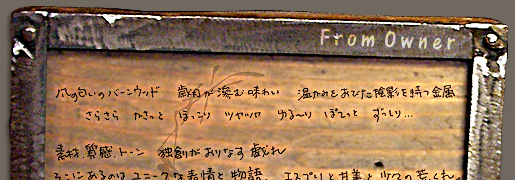 From Owner
爪の匂いのバーンウッド 歳月が滲む味わい 温かみをあびた陰影を持つ金属
さらさら かさっと ほっこり ツヤツヤ ゆる〜り ぽてっと ずっしり…
素材、質感、トーン 独創がおりなす戯れ
そこにあるのはユニークな表情と物語。 エスプリと甘美と少々の荒くれ